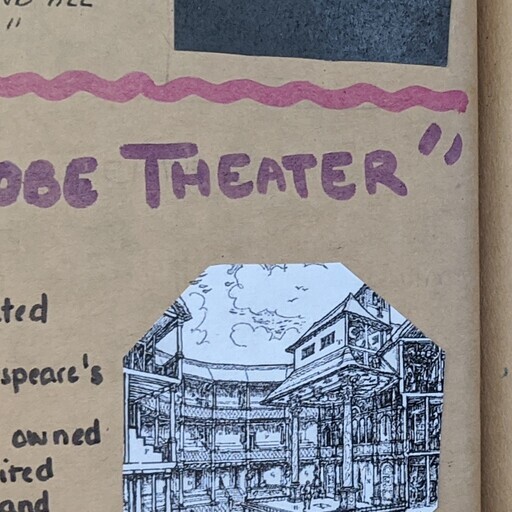 "
OBE THEATER"
ted
speare's
owned
ited
and